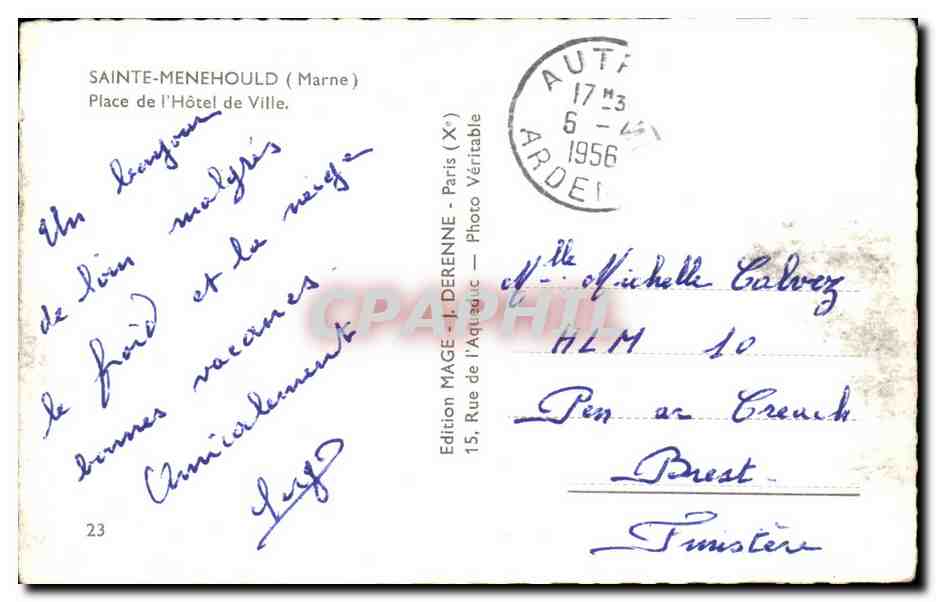 SAINTE-MENEHOULD (Marne)
Place de l'Hôtel de Ville.
Un bonjour
de loin malgrés
le froid et la neige
bonnes vacances.
Amicalement
23
Edition MAGE - J. DERENNE - Paris (Xe)
15, Rue de l'Aqueduc — Photo Véritable
AUTR
17 H
6 -
1956
ARDEN
CPAPHIL
Mlle Michelle Calvez
HLM 10
Pen ar Creach
Brest
Finistère